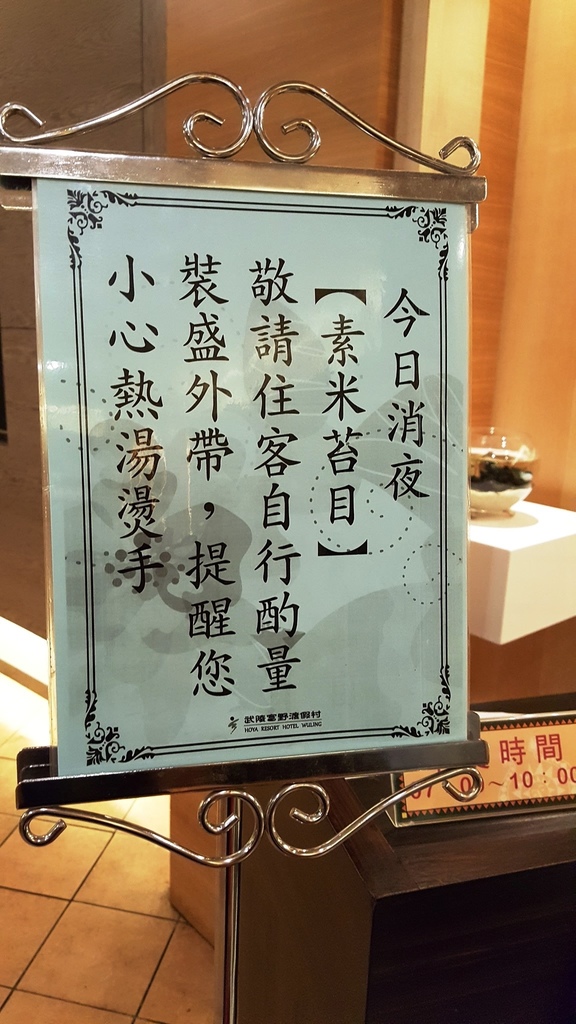 今日消夜
【素米苔目】
敬請住客自行酌量
裝盛外帶，提醒您
小心熱湯燙手
武陵富野渡假村
HOYA RESORT HOTEL WULING
時間
～10：00